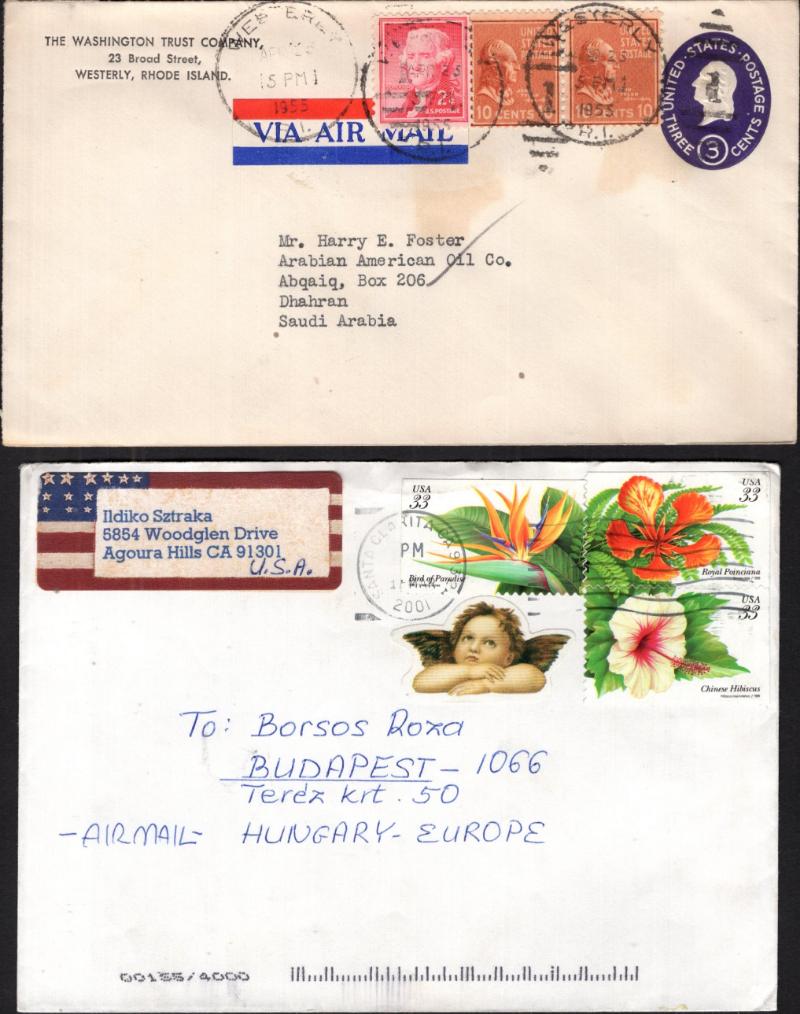 THE WASHINGTON TRUST COMPANY,
23 Broad Street,
WESTERLY, RHODE ISLAND.
WESTERLY
APR 25
5 PM
1955
R.I.
VIA AIR MAIL
2¢
U.S. POSTAGE
UNITED STATES POSTAGE
10 CENTS
UNITED STATES POSTAGE
CENTS 10
WESTERLY
5 PM
1955
R.I.
UNITED·STATES·POSTAGE
THREE 3 CENTS
Mr. Harry E. Foster
Arabian American Oil Co.
Abqaiq, Box 206
Dhahran
Saudi Arabia
Ildiko Sztraka
5854 Woodglen Drive
Agoura Hills CA 91301
U.S.A.
SANTA CLARITA CA
PM
2001
USA
33
Bird of Paradise
USA
33
Royal Poinciana
USA
33
Chinese Hibiscus
To: Borsos Roza
BUDAPEST - 1066
Teréz krt. 50
-AIRMAIL- HUNGARY-EUROPE
00155/4000